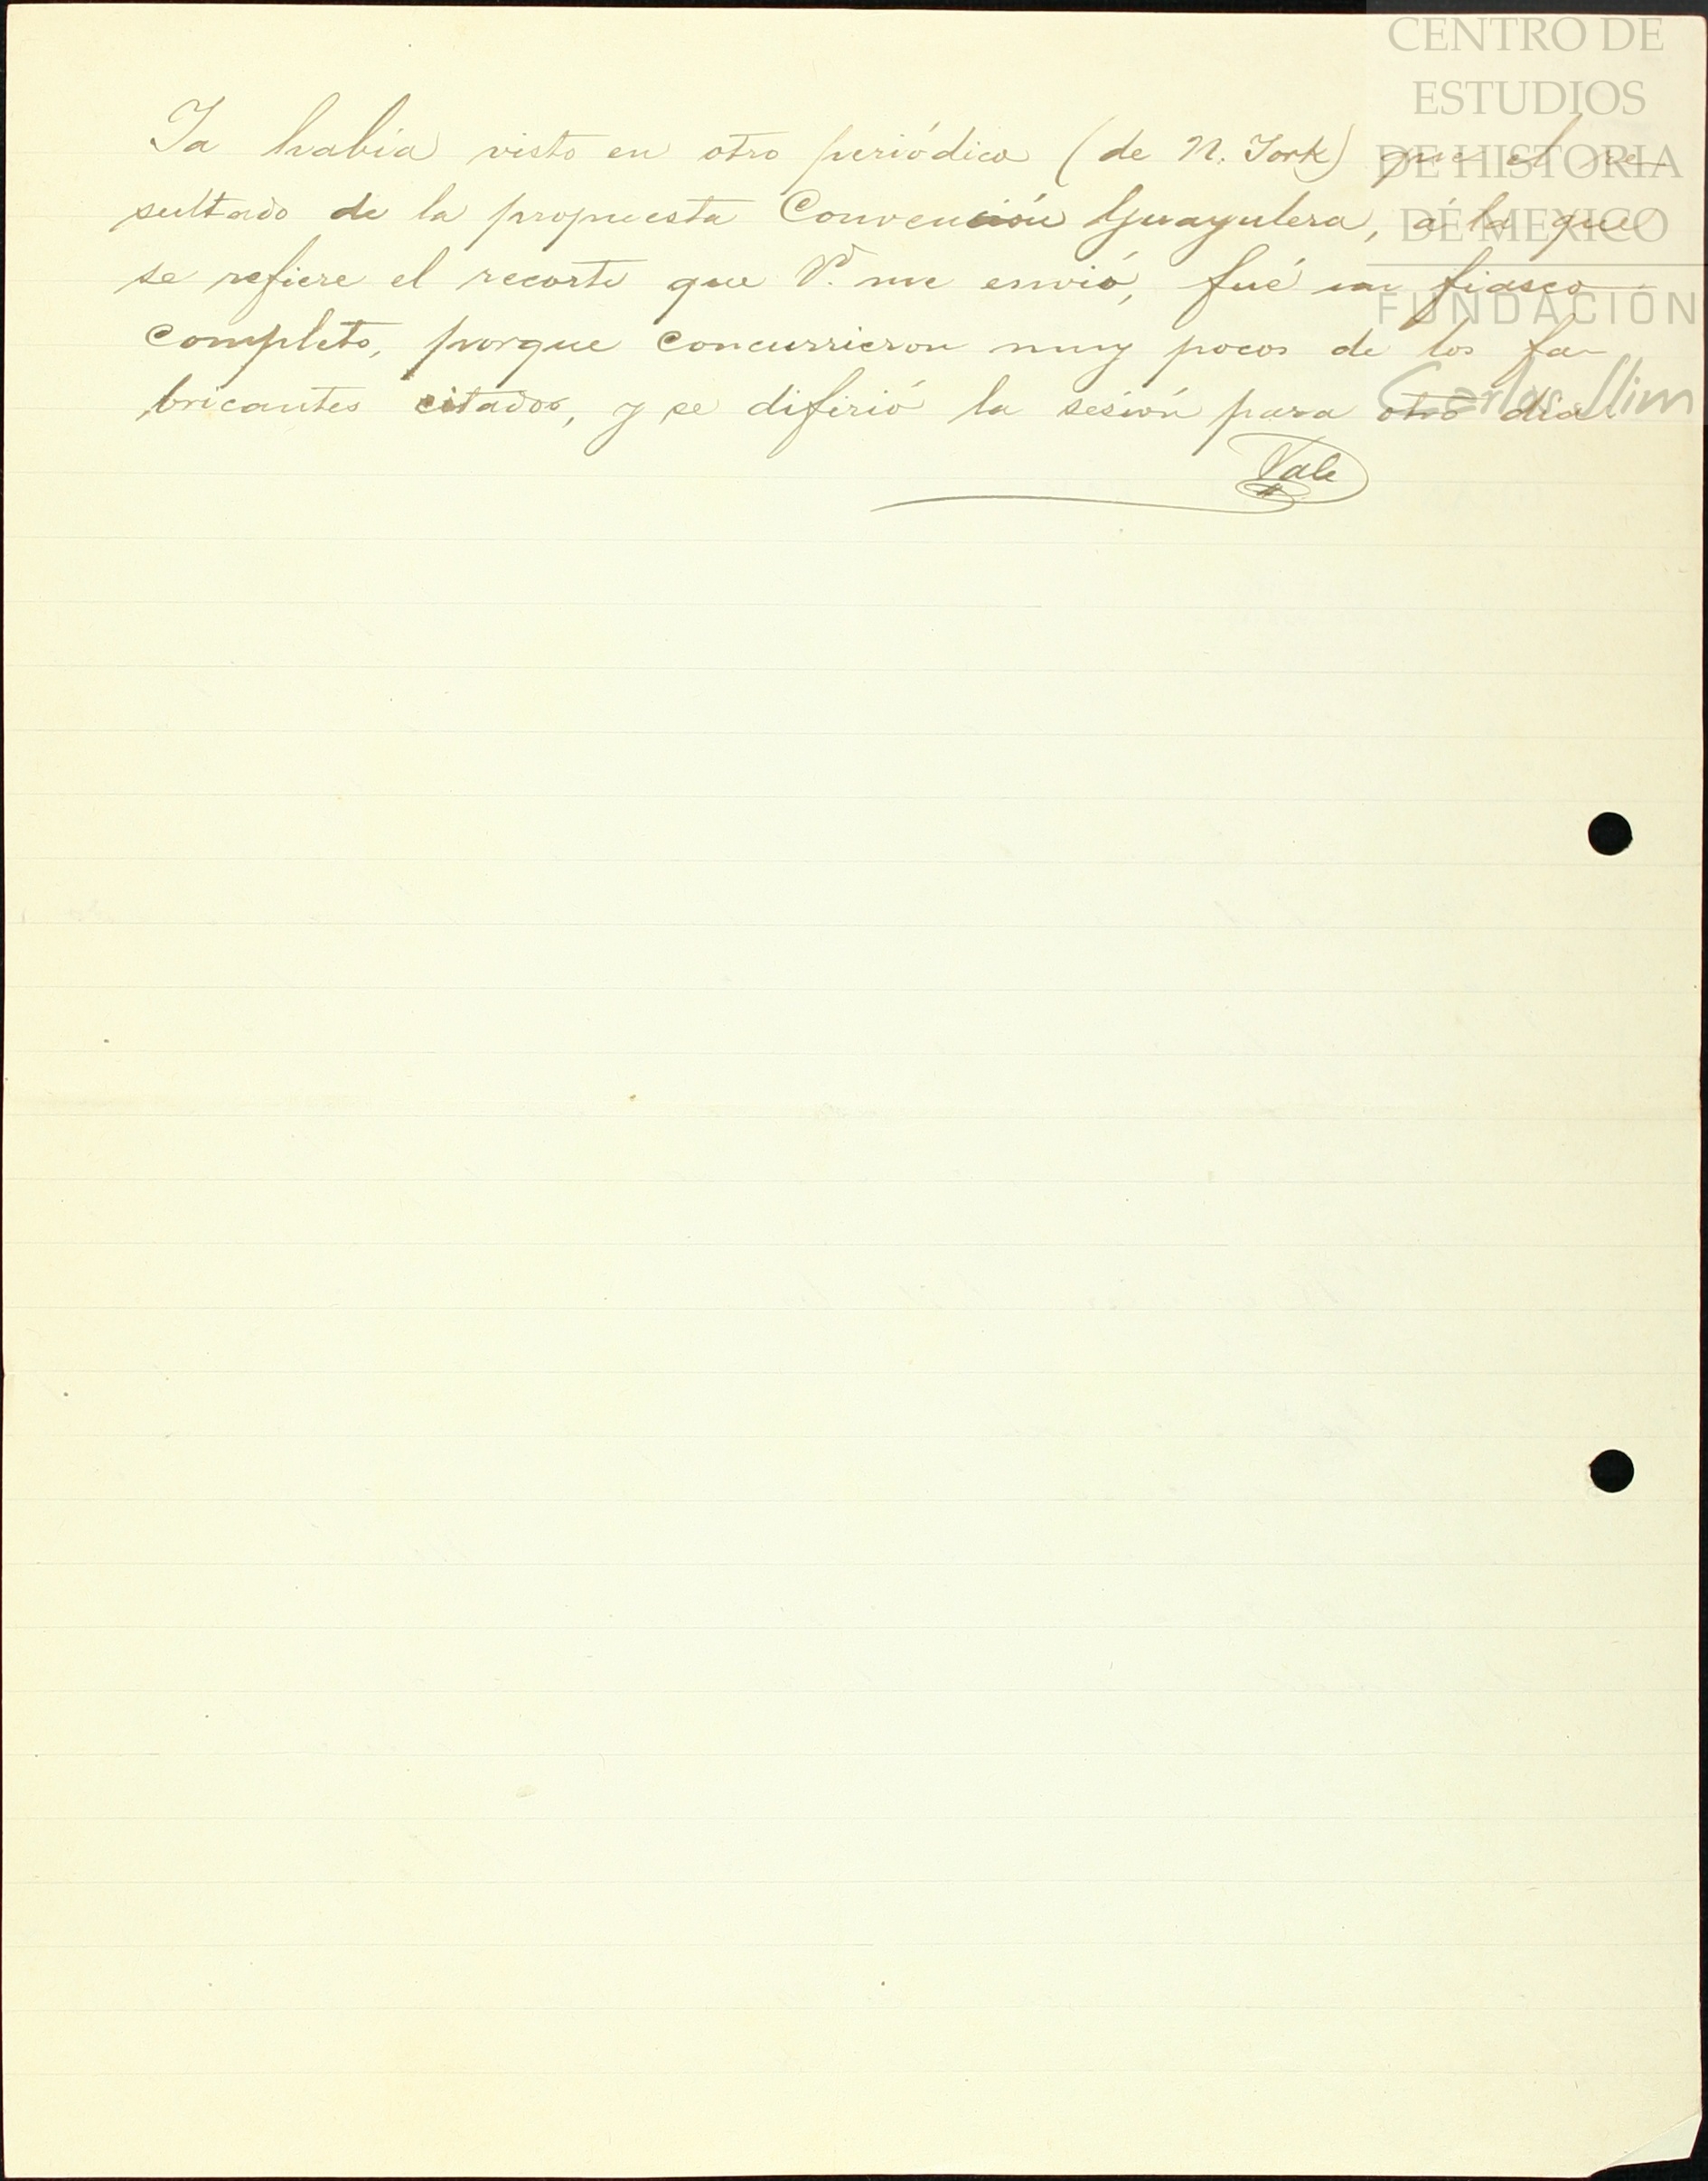 CENTRO DE
ESTUDIOS
DE HISTORIA
DE MEXICO
FUNDACIÓN
Carlos Slim
Ya había visto en otro periódico (de N. York) que el re-
sultado de la propuesta Convención Guayulera, á la que
se refiere el recorte que Vd. me envió, fué un fiasco
completo, porque concurrieron muy pocos de los fa-
bricantes citados, y se difirió la sesión para otro día.
Vale